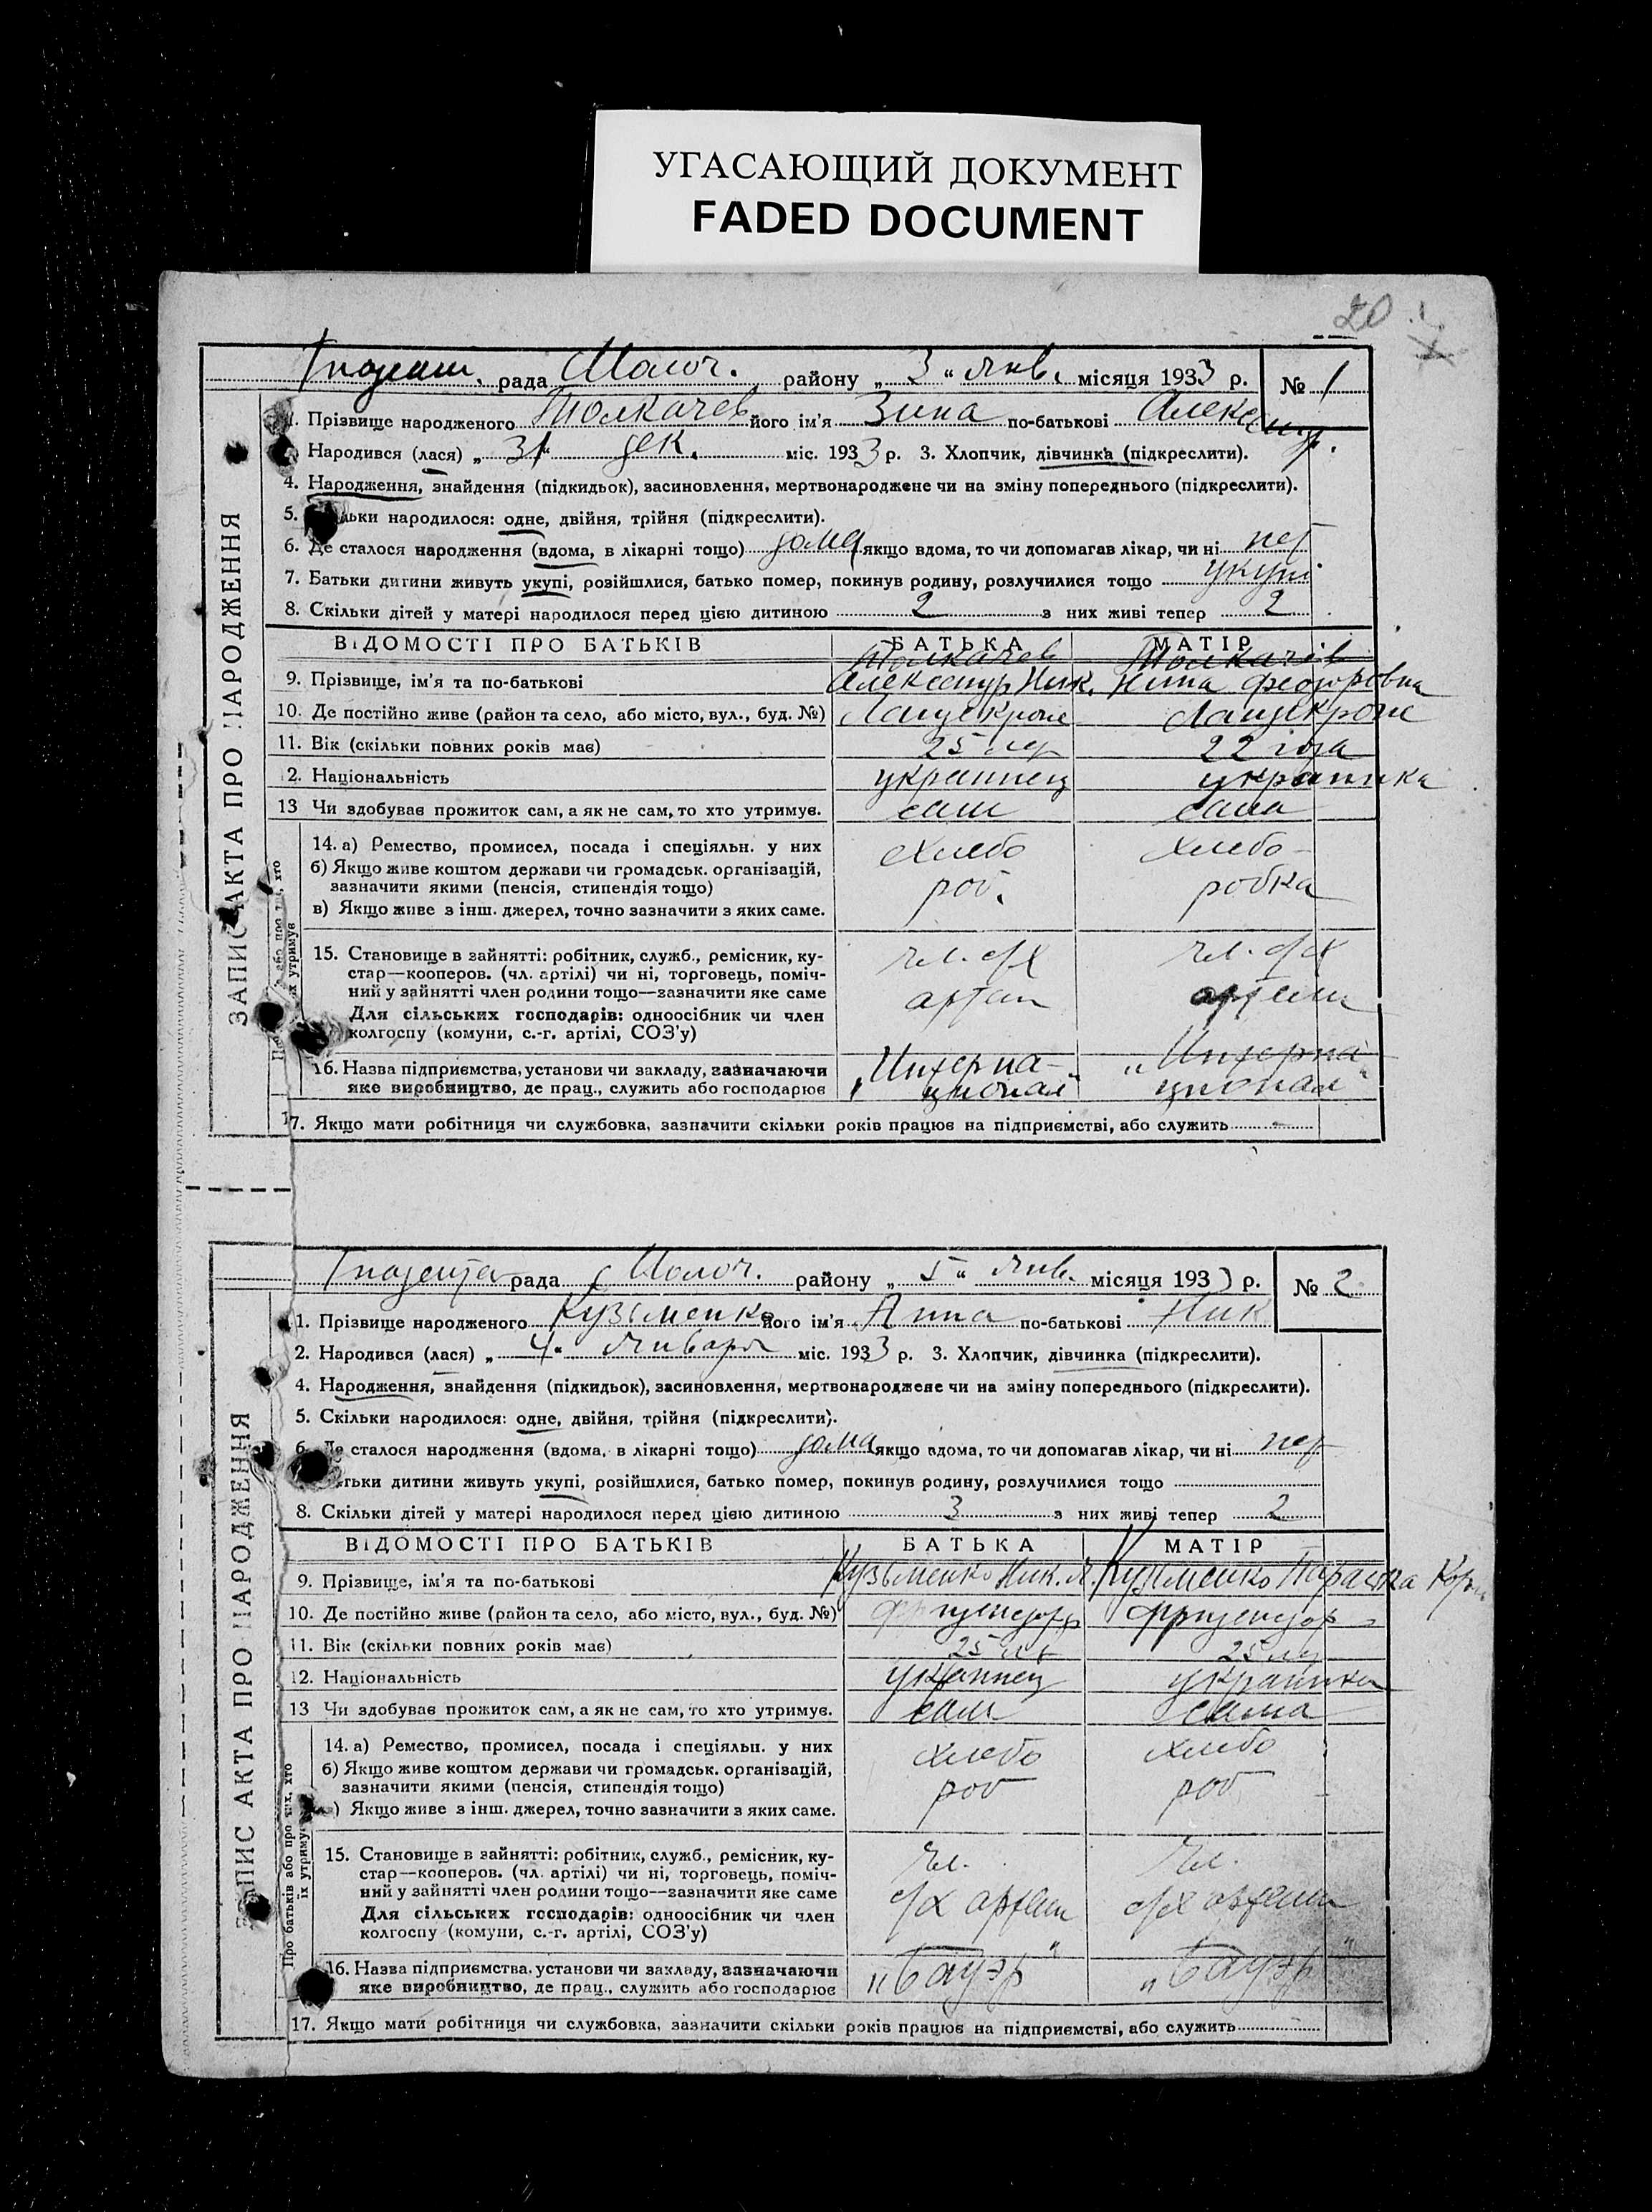 УГАСАЮЩИЙ ДОКУМЕНТ
FADED DOCUMENT
20
рада Молоч. району „ 3 “ янв. місяця 1933 р. № 1
ЗАПИС АКТА ПРО НАРОДЖЕННЯ
1. Прізвище народженого Толкачев його ім'я Зина по-батькові Александр.
Народився (лася) „ 31 “ дек. міс. 1933 р. 3. Хлопчик, дівчинка (підкреслити).
4. Народження, знайдення (підкидьок), засиновлення, мертвонароджене чи на зміну попереднього (підкреслити).
5. льки народилося: одне, двійня, трійня (підкреслити).
6. Де сталося народження (вдома, в лікарні тощо) дома якщо вдома, то чи допомагав лікар, чи ні нет
7. Батьки дитини живуть укупі, розійшлися, батько помер, покинув родину, розлучилися тощо укупі
8. Скільки дітей у матері народилося перед цією дитиною 2 з них живі тепер 2
ВІДОМОСТІ ПРО БАТЬКІВ БАТЬКА МАТІР
Толкачев Толкачев
9. Прізвище, ім'я та по-батькові Александр Ник. Нина Федоровна
10. Де постійно живе (район та село, або місто, вул., буд. №) Ландскроне Ландскроне
11. Вік (скільки повних років має) 25 лет 22 года
12. Національність украинец украинка
13 Чи здобуває прожиток сам, а як не сам, то хто утримує. сам сама
14. а) Ремество, промисел, посада і спеціяльн. у них хлебо хлебо-
б) Якщо живе коштом держави чи громадськ. організацій,
зазначити якими (пенсія, стипендія тощо) роб. робка
в) Якщо живе з інш. джерел, точно зазначити з яких саме.
15. Становище в зайнятті: робітник, служб., ремісник, ку-
стар—кооперов. (чл. артілі) чи ні, торговець, поміч- чл. с/х чл. с/х
ний у зайнятті член родини тощо—зазначити яке саме артели артели
Для сільських господарів: одноосібник чи член
колгоспу (комуни, с.-г. артілі, СОЗ'у)
16. Назва підприємства, установи чи закладу, зазначаючи „Интерна- „Интерна
яке виробництво, де прац., служить або господарює ционал“ ционал“
17. Якщо мати робітниця чи службовка, зазначити скільки років працює на підприємстві, або служить -
рада Молоч. району „ 5 “ янв. місяця 1933 р. № 2
ЗАПИС АКТА ПРО НАРОДЖЕННЯ
1. Прізвище народженого Кузьменко його ім'я Анна по-батькові Ник
2. Народився (лася) „ 4 “ января міс. 1933 р. 3. Хлопчик, дівчинка (підкреслити).
4. Народження, знайдення (підкидьок), засиновлення, мертвонароджене чи на зміну попереднього (підкреслити).
5. Скільки народилося: одне, двійня, трійня (підкреслити).
6. Де сталося народження (вдома, в лікарні тощо) дома якщо вдома, то чи допомагав лікар, чи ні нет
тьки дитини живуть укупі, розійшлися, батько помер, покинув родину, розлучилися тощо
8. Скільки дітей у матері народилося перед цією дитиною 3 з них живі тепер 2
ВІДОМОСТІ ПРО БАТЬКІВ БАТЬКА МАТІР
9. Прізвище, ім'я та по-батькові Кузьменко Ник. Кузьменко Парашка
10. Де постійно живе (район та село, або місто, вул., буд. №)
11. Вік (скільки повних років має) 25 лет 25 лет
12. Національність украинец украинка
13 Чи здобуває прожиток сам, а як не сам, то хто утримує. сам сама
14. а) Ремество, промисел, посада і спеціяльн. у них хлебо хлебо
б) Якщо живе коштом держави чи громадськ. організацій,
зазначити якими (пенсія, стипендія тощо) роб роб
) Якщо живе з інш. джерел, точно зазначити з яких саме.
Про батьків або про тих, хто їх утримує
15. Становище в зайнятті: робітник, служб., ремісник, ку- чл. чл.
стар—кооперов. (чл. артілі) чи ні, торговець, поміч-
ний у зайнятті член родини тощо—зазначити яке саме с/х артели с/х артели
Для сільських господарів: одноосібник чи член
колгоспу (комуни, с.-г. артілі, СОЗ'у)
16. Назва підприємства, установи чи закладу, зазначаючи „Бауэр“ „Бауэр“
яке виробництво, де прац., служить або господарює
17. Якщо мати робітниця чи службовка, зазначити скільки років працює на підприємстві, або служить